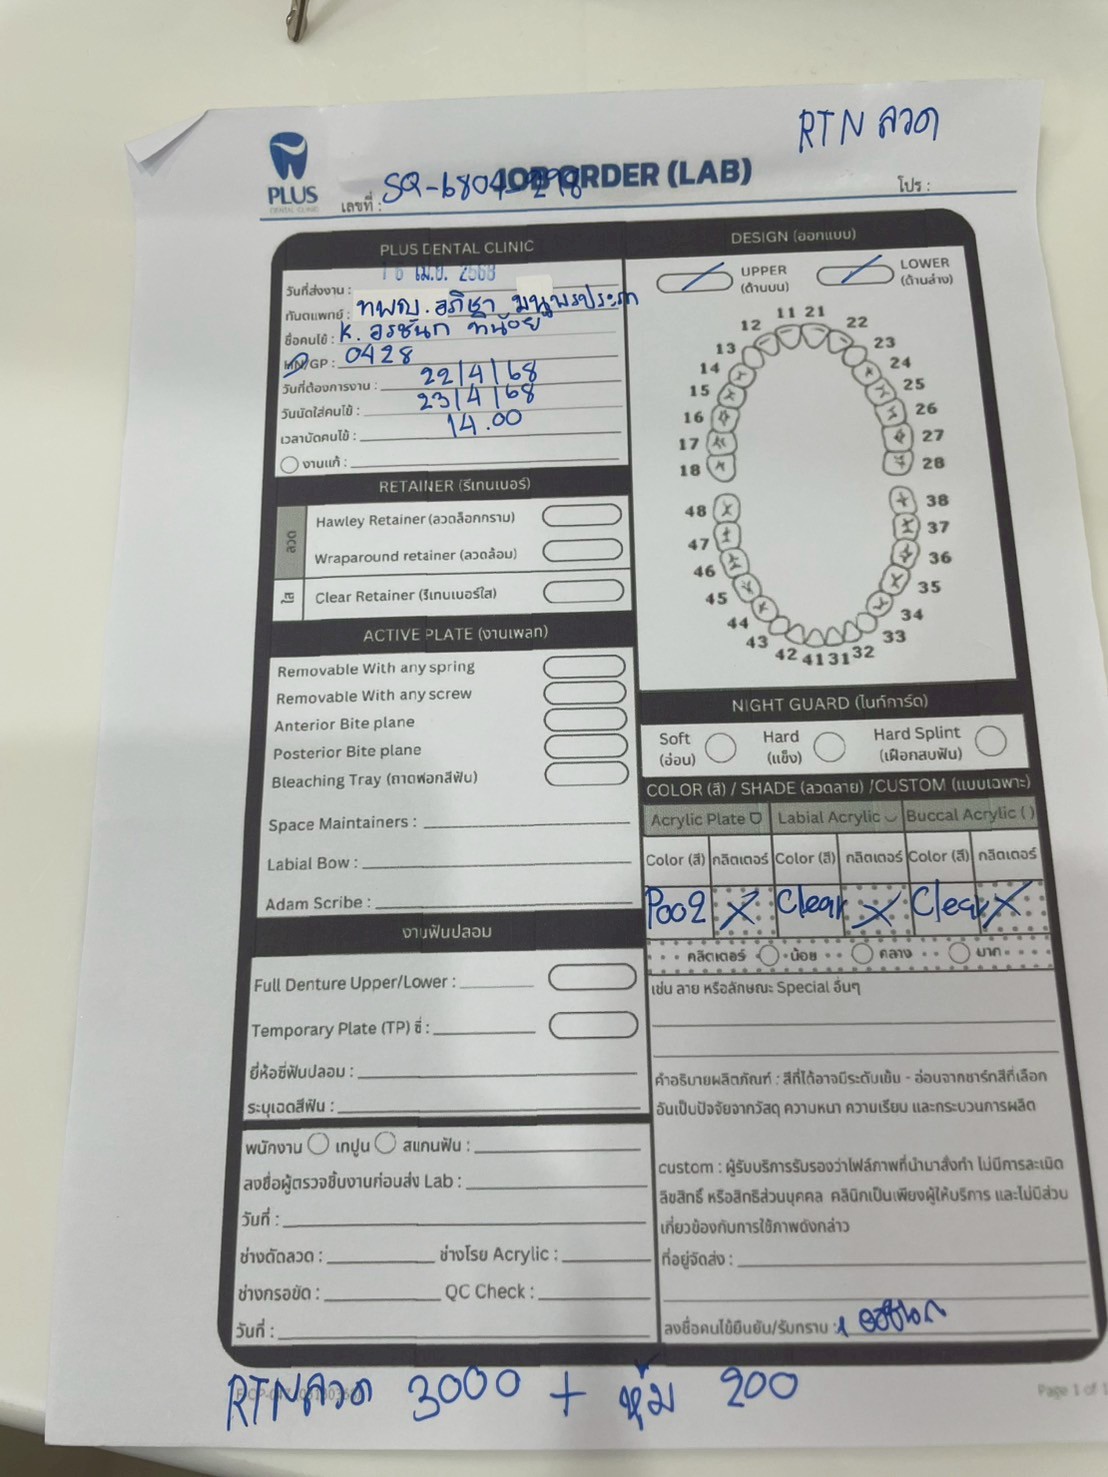 RTN ลวด
PLUS
DENTAL CLINIC
JOB ORDER (LAB)
เลขที่ : SQ-6804-298
โปร :
PLUS DENTAL CLINIC
วันที่ส่งงาน : 16 เม.ย. 2568
ทันตแพทย์ : ทพญ. อภิชา
ชื่อคนไข้ : K. อรชนก
HN/GP : 0428
วันที่ต้องการงาน : 22/4/68
วันนัดใส่คนไข้ : 23/4/68
เวลานัดคนไข้ : 14.00
งานแก้ :
RETAINER (รีเทนเนอร์)
ลวด
Hawley Retainer (ลวดล็อกกราม)
Wraparound retainer (ลวดล้อม)
ใส
Clear Retainer (รีเทนเนอร์ใส)
ACTIVE PLATE (งานเพลท)
Removable With any spring
Removable With any screw
Anterior Bite plane
Posterior Bite plane
Bleaching Tray (ถาดฟอกสีฟัน)
Space Maintainers :
Labial Bow :
Adam Scribe :
งานฟันปลอม
Full Denture Upper/Lower :
Temporary Plate (TP) ซี่ :
ยี่ห้อซี่ฟันปลอม :
ระบุเฉดสีฟัน :
พนักงาน เทปูน สแกนฟัน :
ลงชื่อผู้ตรวจชิ้นงานก่อนส่ง Lab :
วันที่ :
ช่างดัดลวด : ช่างโรย Acrylic :
ช่างกรอขัด : QC Check :
วันที่ :
DESIGN (ออกแบบ)
UPPER
(ด้านบน)
LOWER
(ด้านล่าง)
11 21
12 22
13 23
14 24
15 25
16 26
17 27
18 28
48 38
47 37
46 36
45 35
44 34
43 33
42 41 31 32
NIGHT GUARD (ไนท์การ์ด)
Soft
(อ่อน)
Hard
(แข็ง)
Hard Splint
(เฝือกสบฟัน)
COLOR (สี) / SHADE (ลวดลาย) /CUSTOM (แบบเฉพาะ)
Acrylic Plate Labial Acrylic Buccal Acrylic ( )
Color (สี) กลิตเตอร์ Color (สี) กลิตเตอร์ Color (สี) กลิตเตอร์
P002 X Clear X Clear X
กลิตเตอร์ น้อย กลาง มาก
เช่น ลาย หรือลักษณะ Special อื่นๆ
คำอธิบายผลิตภัณฑ์ : สีที่ได้อาจมีระดับเข้ม - อ่อนจากชาร์ทสีที่เลือก
อันเป็นปัจจัยจากวัสดุ ความหนา ความเรียบ และกระบวนการผลิต
custom : ผู้รับบริการรับรองว่าไฟล์ภาพที่นำมาสั่งทำ ไม่มีการละเมิด
ลิขสิทธิ์ หรือสิทธิส่วนบุคคล คลินิกเป็นเพียงผู้ให้บริการ และไม่มีส่วน
เกี่ยวข้องกับการใช้ภาพดังกล่าว
ที่อยู่จัดส่ง :
ลงชื่อคนไข้ยืนยัน/รับทราบ : อรชนก
RTN ลวด 3000 + หุ้ม 200
Page 1 of 1